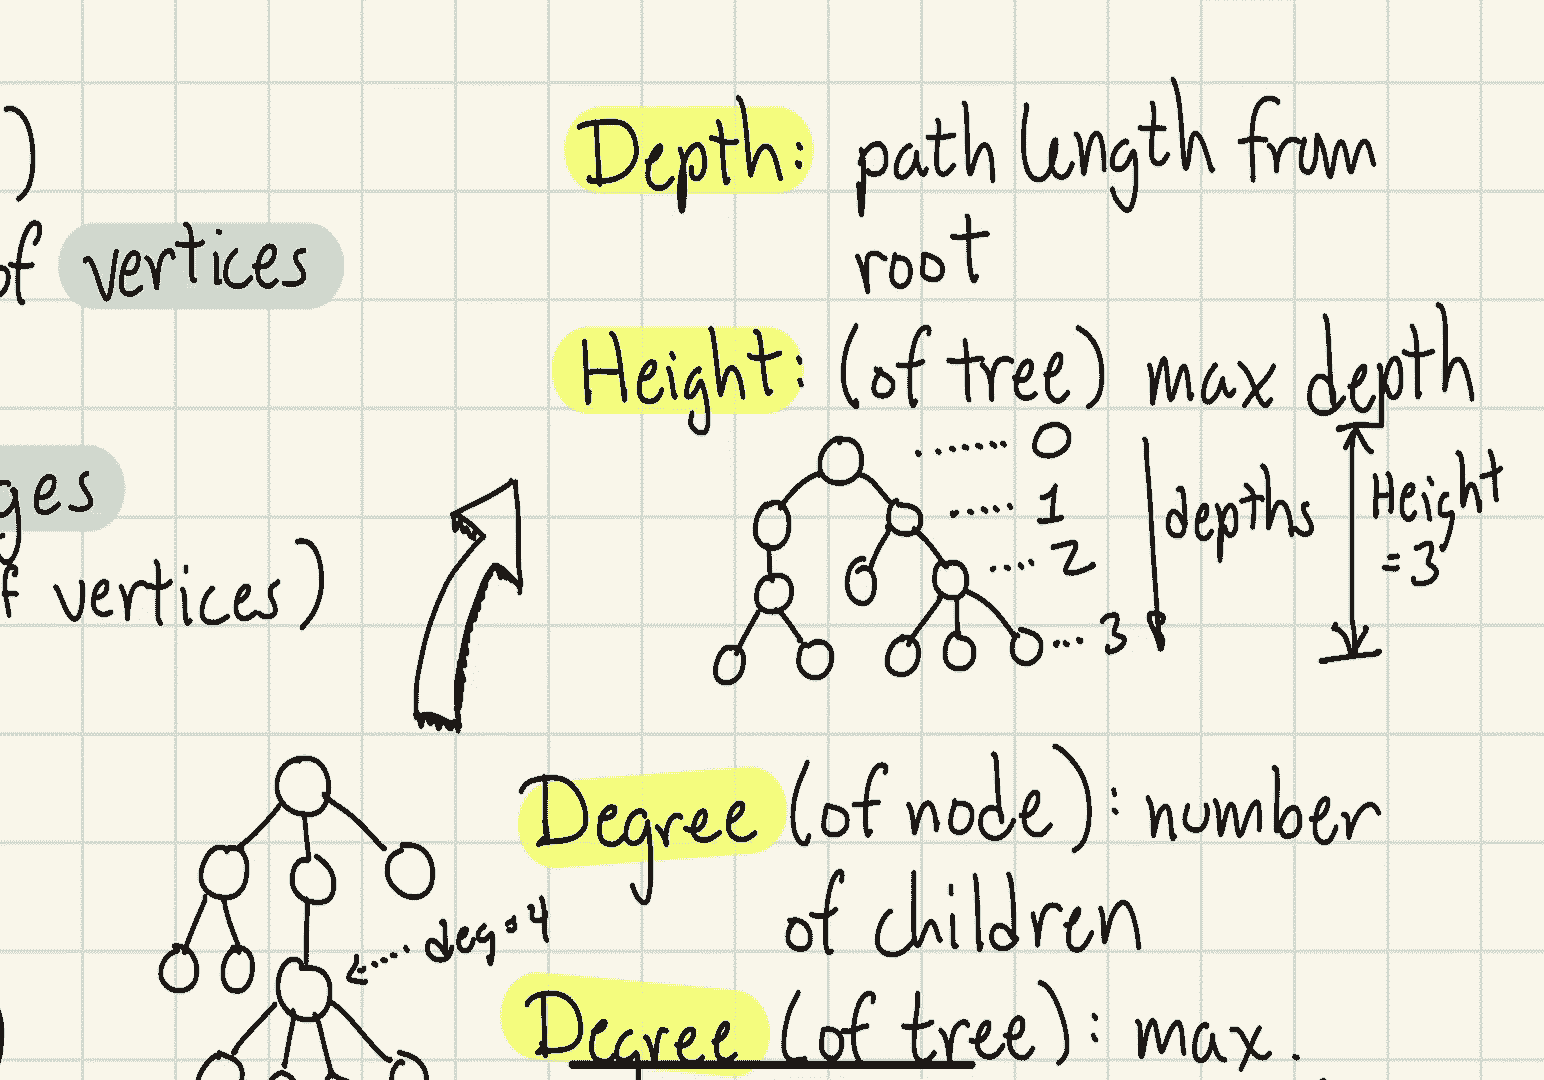 )
of vertices
ges
f vertices)
Depth: path length from
root
Height: (of tree) max depth
0
1
2
3
depths
Height
= 3
Degree (of node): number
of children
deg = 4
Degree (of tree): max.